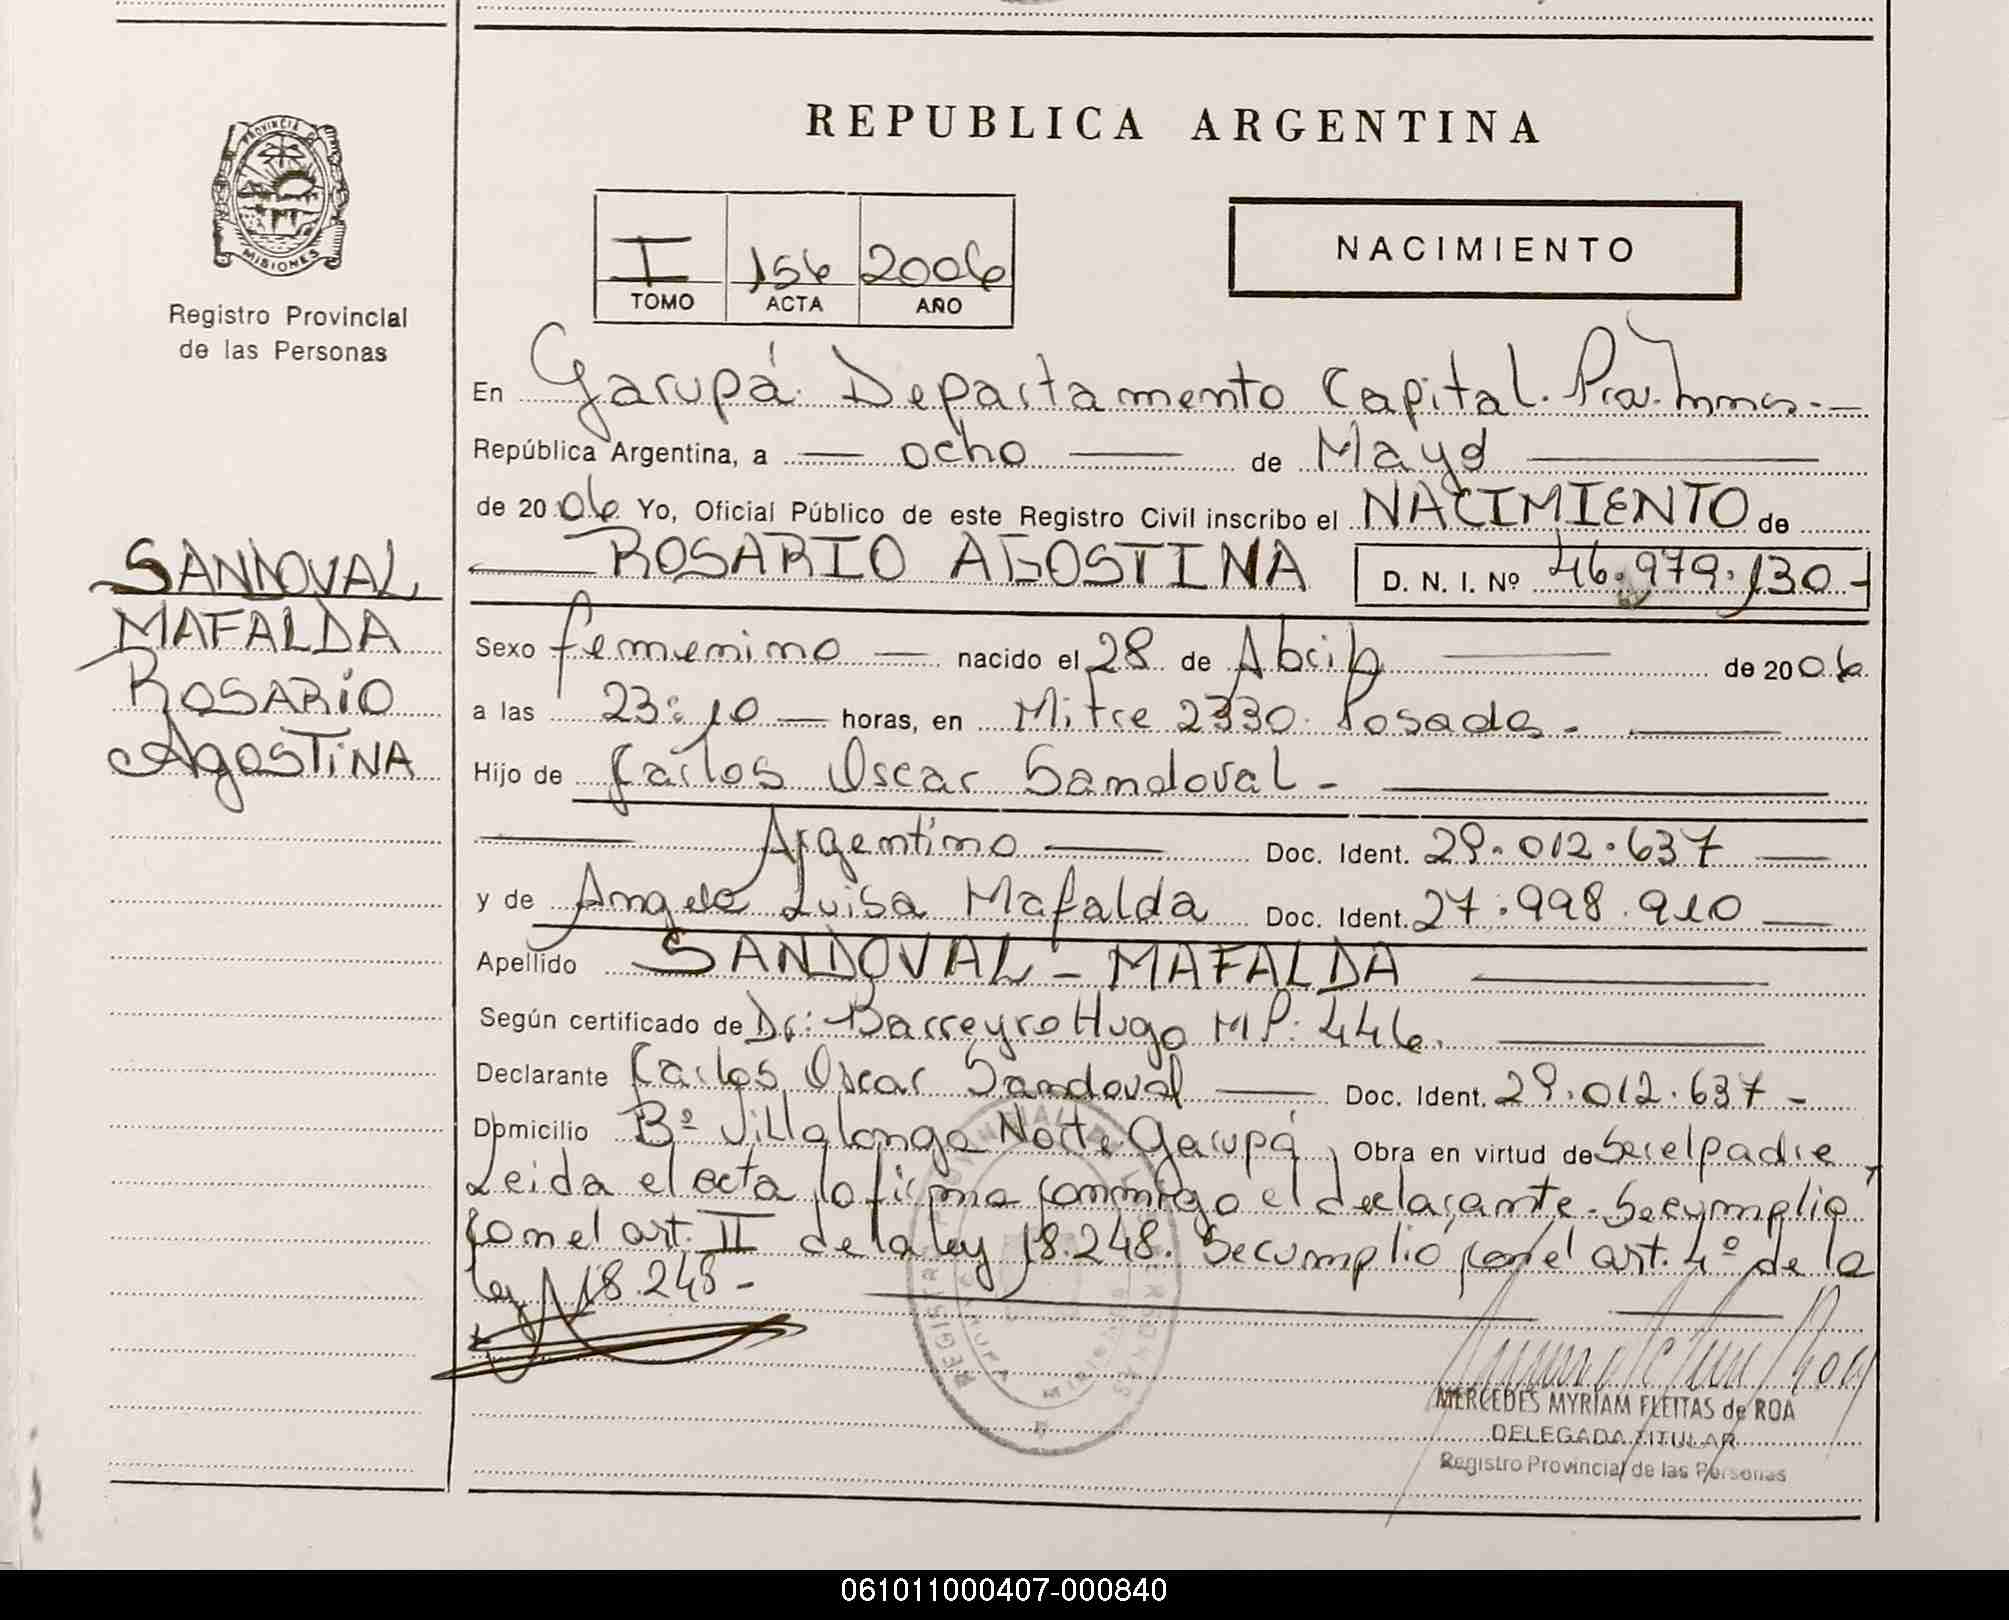 REPUBLICA ARGENTINA
PROVINCIA DE
MISIONES
Registro Provincial
de las Personas
I 156 2006
TOMO ACTA AÑO
NACIMIENTO
SANDOVAL
MAFALDA
ROSARIO
AGOSTINA
En Garupá Departamento Capital. Prov. Mnes.-
República Argentina, a ocho de Mayo
de 2006 Yo, Oficial Público de este Registro Civil inscribo el NACIMIENTO de
ROSARIO AGOSTINA D. N. I. Nº 46.979.130-
Sexo femenino nacido el 28 de Abril de 2006
a las 23:10 horas, en Mitre 2330. Posadas.
Hijo de Carlos Oscar Sandoval -
Argentino Doc. Ident. 29.012.637
y de Angela Luisa Mafalda Doc. Ident. 27.998.910
Apellido SANDOVAL - MAFALDA
Según certificado de Dr: Barreyro Hugo MP: 446.
Declarante Carlos Oscar Sandoval Doc. Ident. 29.012.637-
Domicilio Bº Villalonga Norte Garupá, Obra en virtud de Ser el padre,
Leida el acta la firma conmigo el declarante. Se cumplió
con el art. II de la ley 18.248. Se cumplió con el art. 4º de la
ley 18.248-
MERCEDES MYRIAM FLEITAS de ROA
DELEGADA TITULAR
Registro Provincial de las Personas
061011000407-000840